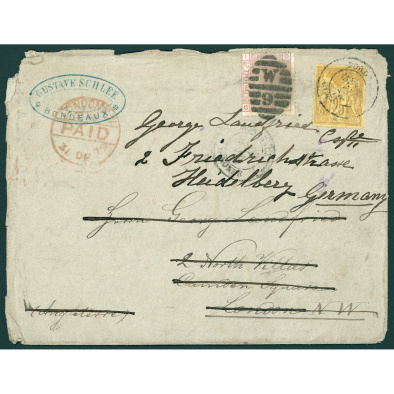 GUSTAVE SCHLEE
BORDEAUX
PAID
31 DE
W
9
George Landfried Esqre
2 Friedrichstrasse
Heidelberg Germany
Herrn Georg Landfried
2 North Villas
Camden Square
London N W
(Angleterre)